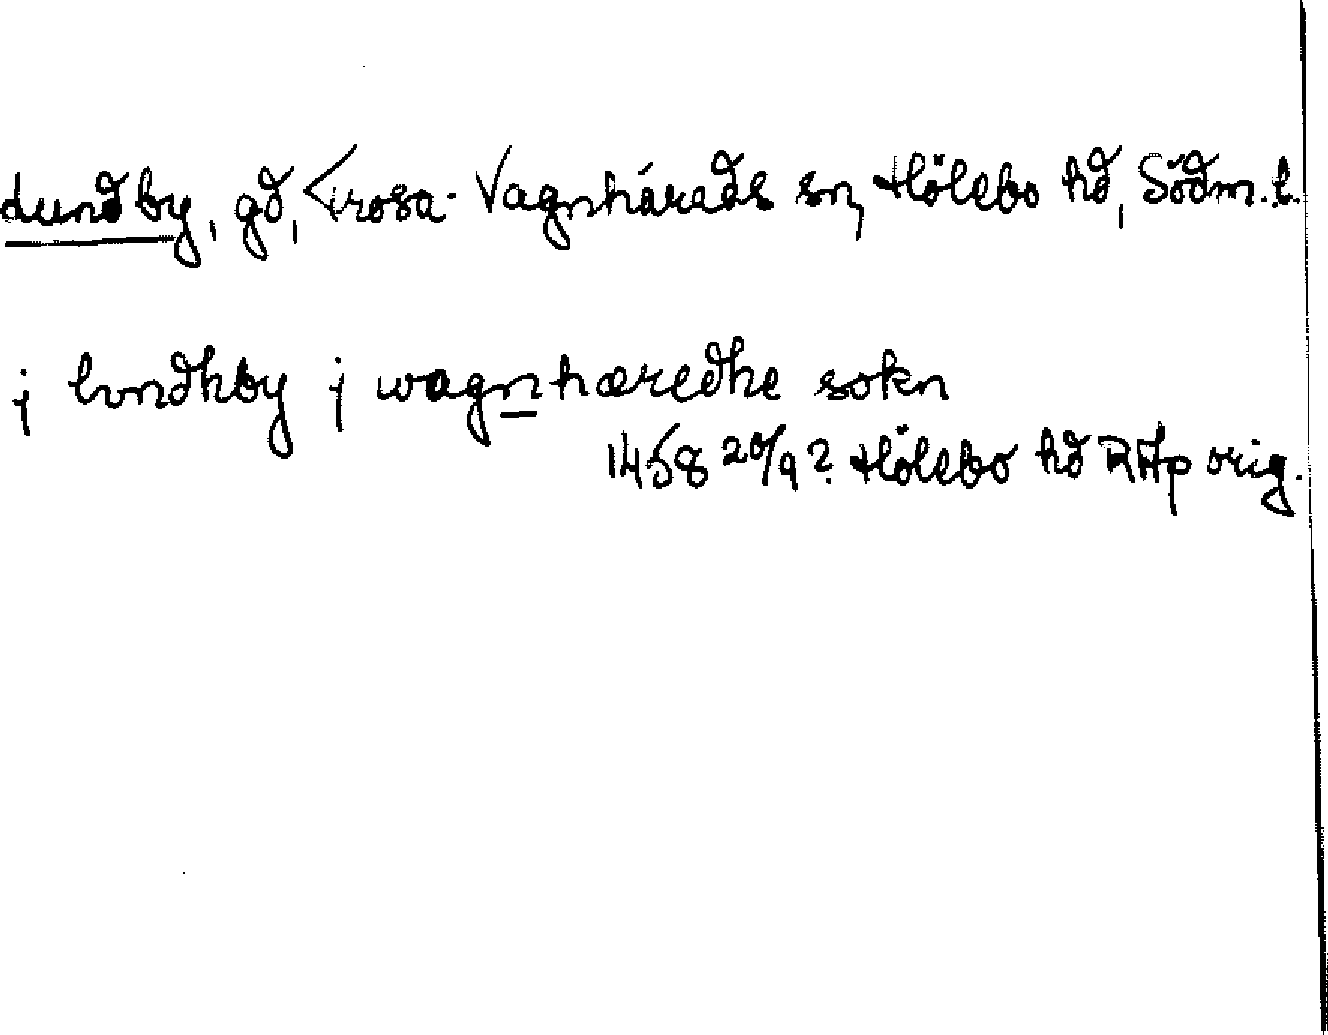 Lundby, gd, Trosa-Vagnhärads sn, Hölebo hd, Södm. l.
j lvndhby j wagnhæredhe sokn
1458 20/9? Hölebo hd RAp orig.